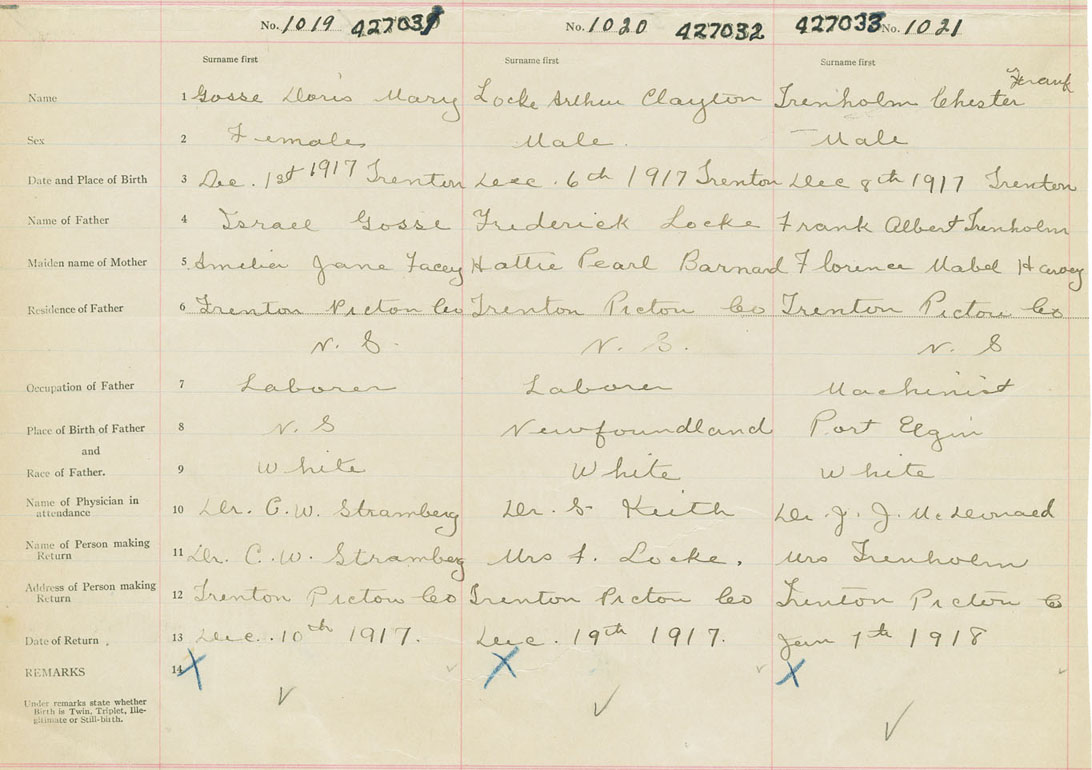 No. 1019 427031 No. 1020 427032 427033 No. 1021
Surname first Surname first Surname first
Frank
Name 1 Gosse Doris Mary Locke Arthur Clayton Trenholm Chester
Sex 2 Female Male Male
Date and Place of Birth 3 Dec. 1st 1917 Trenton Dec. 6th 1917 Trenton Dec 8th 1917 Trenton
Name of Father 4 Israel Gosse Frederick Locke Frank Albert Trenholm
Maiden name of Mother 5 Amelia Jane Facey Hattie Pearl Barnard Florence Mabel Harvey
Residence of Father 6 Trenton Pictou Co Trenton Pictou Co Trenton Pictou Co
N. S. N. S. N. S
Occupation of Father 7 Laborer Laborer Machinist
Place of Birth of Father 8 N. S Newfoundland Port Elgin
and
Race of Father. 9 White White White
Name of Physician in
attendance 10 Dr. C. W. Stramberg Dr. S Keith Dr. J. J. McDonald
Name of Person making
Return 11 Dr. C. W. Stramberg Mrs F. Locke. Mrs Trenholm
Address of Person making
Return 12 Trenton Pictou Co Trenton Pictou Co Trenton Pictou Co
Date of Return . 13 Dec. 10th 1917. Dec. 19th 1917. Jan 7th 1918
REMARKS 14 X X X
Under remarks state whether
Birth is Twin, Triplet, Ille-
gitimate or Still-birth.